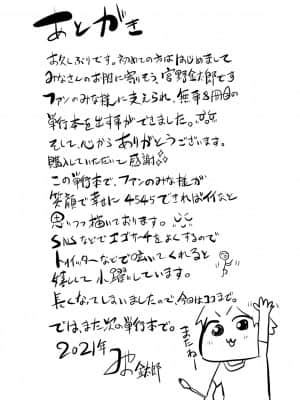 あとがき
お久しぶりです。初めての方ははじめまして
みなさんのお側に寄りそう、宮野金太郎です
ファンのみな様に支えられ、無事8冊目の
単行本を出す事ができました。
そして、心からありがとうございます。
購入していただいて感謝
この単行本で、ファンのみな様が
笑顔で幸せに4545できればイイなと
思いつつ描いております。
SNSなどでエゴサーチをよくするので
トイッターなどで呟いてくれると
嬉しくて小躍りしています。
長くなってしまいましたので、今回はココまで。
では、また次の単行本で。
2021年
みや鉄郎
またねー